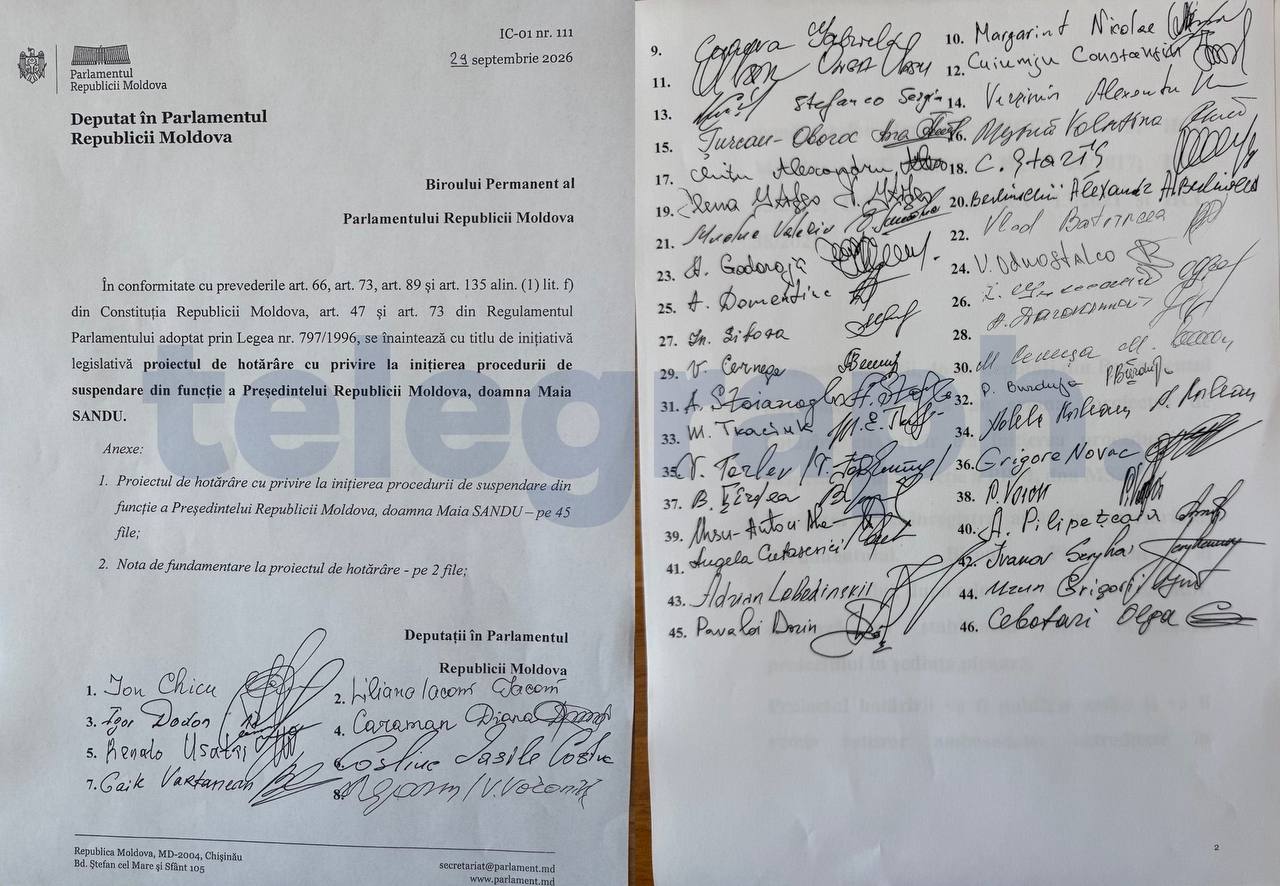 IC-01 nr. 111
29 septembrie 2026
Parlamentul
Republicii Moldova
Deputat în Parlamentul
Republicii Moldova
Biroului Permanent al
Parlamentului Republicii Moldova
În conformitate cu prevederile art. 66, art. 73, art. 89 și art. 135 alin. (1) lit. f)
din Constituția Republicii Moldova, art. 47 și art. 73 din Regulamentul
Parlamentului adoptat prin Legea nr. 797/1996, se înaintează cu titlu de inițiativă
legislativă proiectul de hotărâre cu privire la inițierea procedurii de
suspendare din funcție a Președintelui Republicii Moldova, doamna Maia
SANDU.
telegraph.
Anexe:
1. Proiectul de hotărâre cu privire la inițierea procedurii de suspendare din
funcție a Președintelui Republicii Moldova, doamna Maia SANDU – pe 45
file;
2. Nota de fundamentare la proiectul de hotărâre - pe 2 file;
Deputații în Parlamentul
Republicii Moldova
1. Ion Chicu
2. Liliana Iacom Iacom
3. Igor Dodon
4. Caraman Diana
5. Renato Usatîi
Costiuc Vasile Costiuc
7. Gaik Vartanean
8. V. Voconii
Republica Moldova, MD-2004, Chișinău
Bd. Ștefan cel Mare și Sfânt 105
secretariat@parlament.md
www.parlament.md
9. Gabriela
10. Margarint Nicolae
11.
12. Cuiumju Constantin
13. Stefanco Sergiu
14. Verșinin Alexandru
15. Țurcan-Oboroc Ana
16. Meșină Valentina
17. Chițu Alexandru
18. C. Starîș
19. Elena
20. Berlinschii Alexandr A. Berlinschii
21. Muduc Valeriu
22. Vlad Batrîncea
23. A. Godoroja
24. V. Odnostalco
25. A. Domentiuc
26.
27. In. Sitora
28.
29. V. Cernega
30. M.
31. A. Stoianoglo A. Stoianoglo
32. P. Burduja P. Burduja
33. M. Tkaciuk
34. Adela
35. V. Tarlev
36. Grigore Novac
37. B. Țîrdea
38.
39. Ursu-Antoci Ala
40. A. Pilipețcaia
41. Angela Cutasevici
42. Ivanov Serghei
43. Adrian Lebedinschii
44. Uzun Grigorii
45. Pavaloi Dorin
46. Cebotari Olga
2